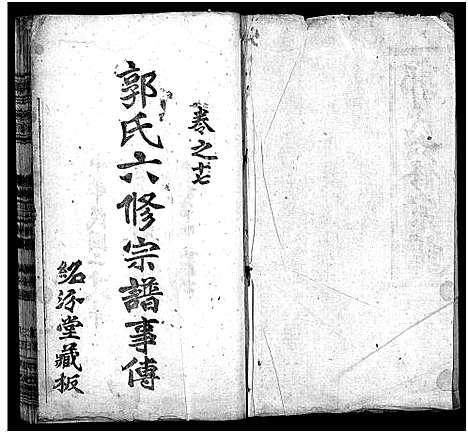 卷之十七
郭氏六修宗譜事傳
紹汾堂藏板